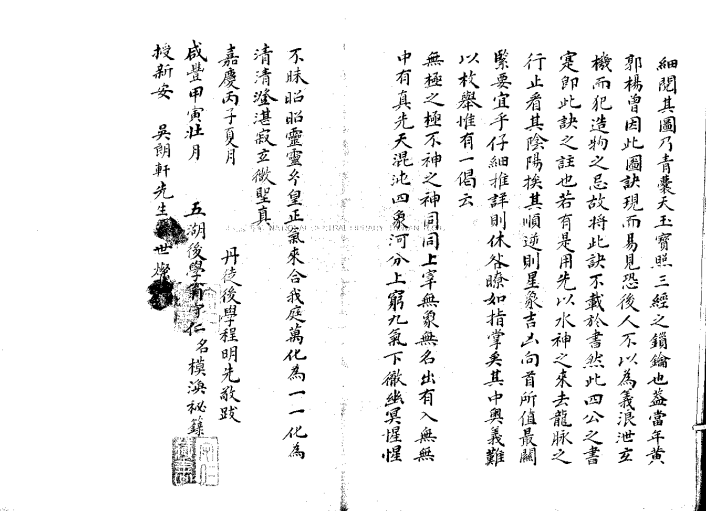 細閱其圖乃青囊天玉寶照三經之鎖鑰也蓋當年黃
郭楊曾因此圖訣現而易見恐後人不以為義浪泄玄
機而犯造物之忌故將此訣不載於書然此四公之書
寔即此訣之註也若有是用先以水神之來去龍脉之
行止看其陰陽挨其順逆則星象吉凶向首所值最關
緊要宜乎仔細推詳則休咎瞭如指掌矣其中奧義難
以枚舉惟有一偈云
無極之極不神之神同同上宰無象無名出有入無無
中有真先天混沌四象河分上窮九氣下徹幽冥惺惺
不昧昭昭靈靈兮皇正氣來合我庭萬化為一一化為
清清澄湛寂立徹聖真
嘉慶丙子夏月
丹徒後學程明先敬跋
咸豐甲寅壯月
五湖後學 守仁名模渙秘籙
授新安 吳朗軒先生 世燦